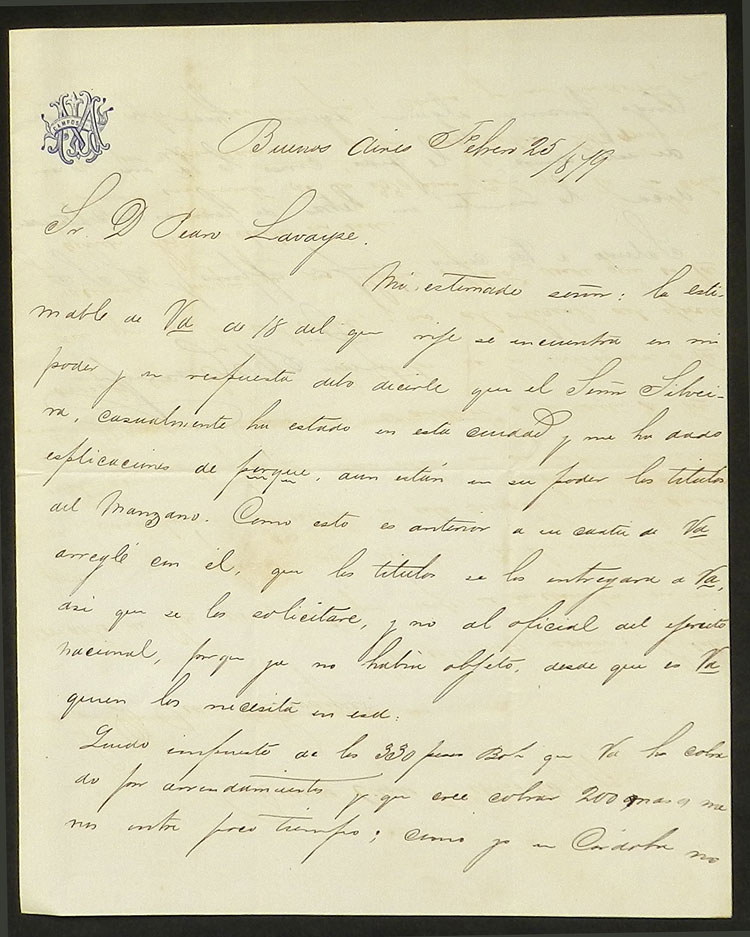 CAMPOS
Buenos Aires Febrero 25/879
Sr. D Pedro Lavayse.
Mi estimado señor: la esti-
mable de Vd de 18 del que rije se encuentra en mi
poder y en respuesta debo decirle que el Señor Silvei-
ra, casualmente ha estado en esta ciudad y me ha dado
esplicaciones de porque, aun están en su poder los titulos
del Manzano. Como esto es anterior a su carta de Vd
arreglé con él, que los titulos se los entregara a Vd,
asi que se los solicitare, y no al oficial del ejercito
nacional, porque ya no habia objeto, desde que es Vd
quien los necesita en esa.
Quedo impuesto de los 330 pesos Bol. que Vd ha cobra
do por arrendamientos y que cree cobrar 200 mas o me
nos entre poco tiempo; como yo en Córdoba no